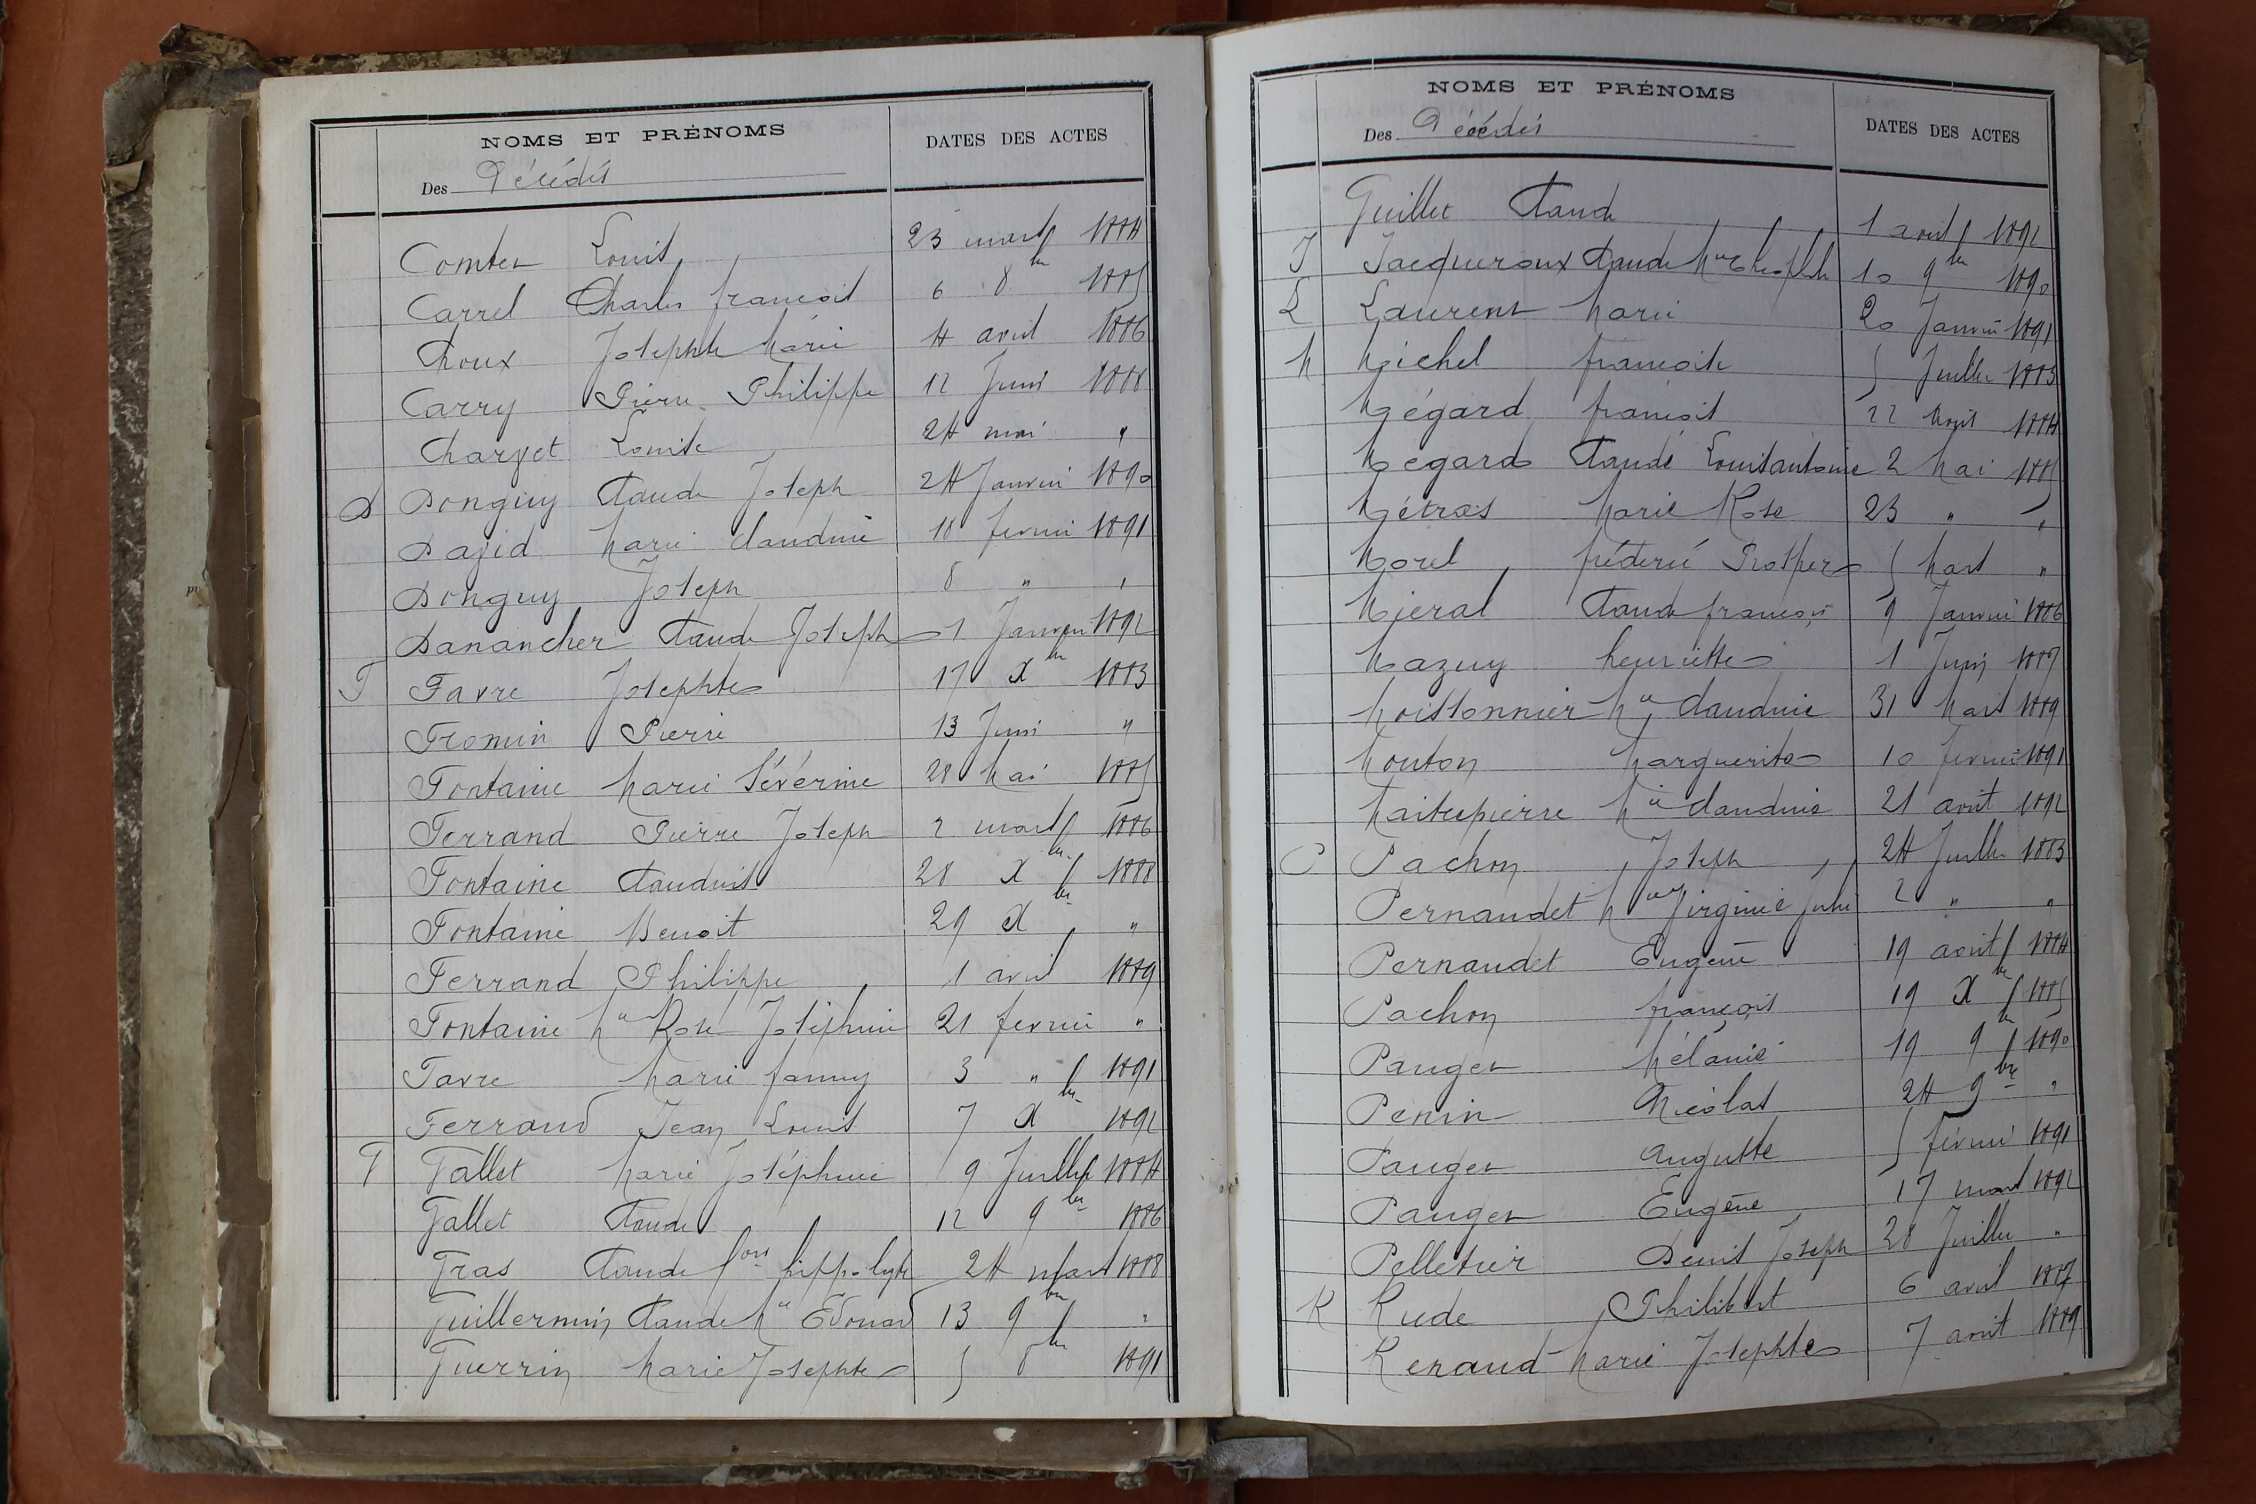 NOMS ET PRÉNOMS
DATES DES ACTES
Des Décédés
Comter Louis 23 mars 1884
Carrel Charles françois 6 8bre 1885
Choux Josephte Marie 4 avril 1886
Carry Pierre Philippe 12 Juin 1888
Charvet Louise 24 mai "
D Donguy Claude Joseph 24 Janvier 1890
David Marie Claudine 18 fevrier 1891
Donguy Joseph 8 " "
Danancher Claude Joseph 1 Janvier 1892
F Favre Josephte 17 Xbre 1883
Fromin Pierre 13 Juin "
Fontaine Marie Sévérine 28 Mai 1885
Ferrand Pierre Joseph 2 mars 1886
Fontaine Claudius 28 Xbre 1888
Fontaine Benoit 29 Xbre "
Ferrand Philippe 1 avril 1889
Fontaine Mie Rose Joséphine 21 fevrier "
Favre Marie fanny 3 " 1891
Ferrand Jean Louis 7 Xbre 1892
G Gallet Marie Joséphine 9 Juillet 1884
Gallet Claude 12 9bre 1886
Gras Claude fois hippolyte 24 Mars 1888
Guillermin Claude Mie Edouard 13 9bre "
Guerrin Marie Josephte 5 8bre 1891
NOMS ET PRÉNOMS
DATES DES ACTES
Des Décédés
Guillet Claude 1 avril 1892
J Jacqueroux Claude Mie Théophile 10 9bre 1890
L Laurent Marie 20 Janvier 1891
M Michel françoise 5 Juillet 1883
Mégard françois 22 Août 1884
Mégard Claude Louis antoine 2 Mai 1885
Métras Marie Rose 23 " "
Morel fréderic Prosper 5 Mars "
Miéral Claude françois 9 Janvier 1886
Mazuy henriette 1 Juin 1887
Moissonnier Mie Claudine 31 Mars 1889
Mouton Marguerite 10 fevrier 1891
Maitrepierre Mie Claudine 21 août 1892
P Pachon Joseph 24 Juillet 1883
Pernaudet Mie Virginie Julie 2 " "
Pernaudet Eugene 19 août 1884
Pachon françois 19 Xbre 1885
Pauget Mélanie 19 9bre 1890
Penin Nicolas 24 9bre "
Pauget Auguste 5 février 1891
Pauget Eugène 17 mars 1892
Pelletier Denis Joseph 28 Juillet "
R Rude Philibert 6 avril 1887
Renaud Marie Josephte 7 août 1889